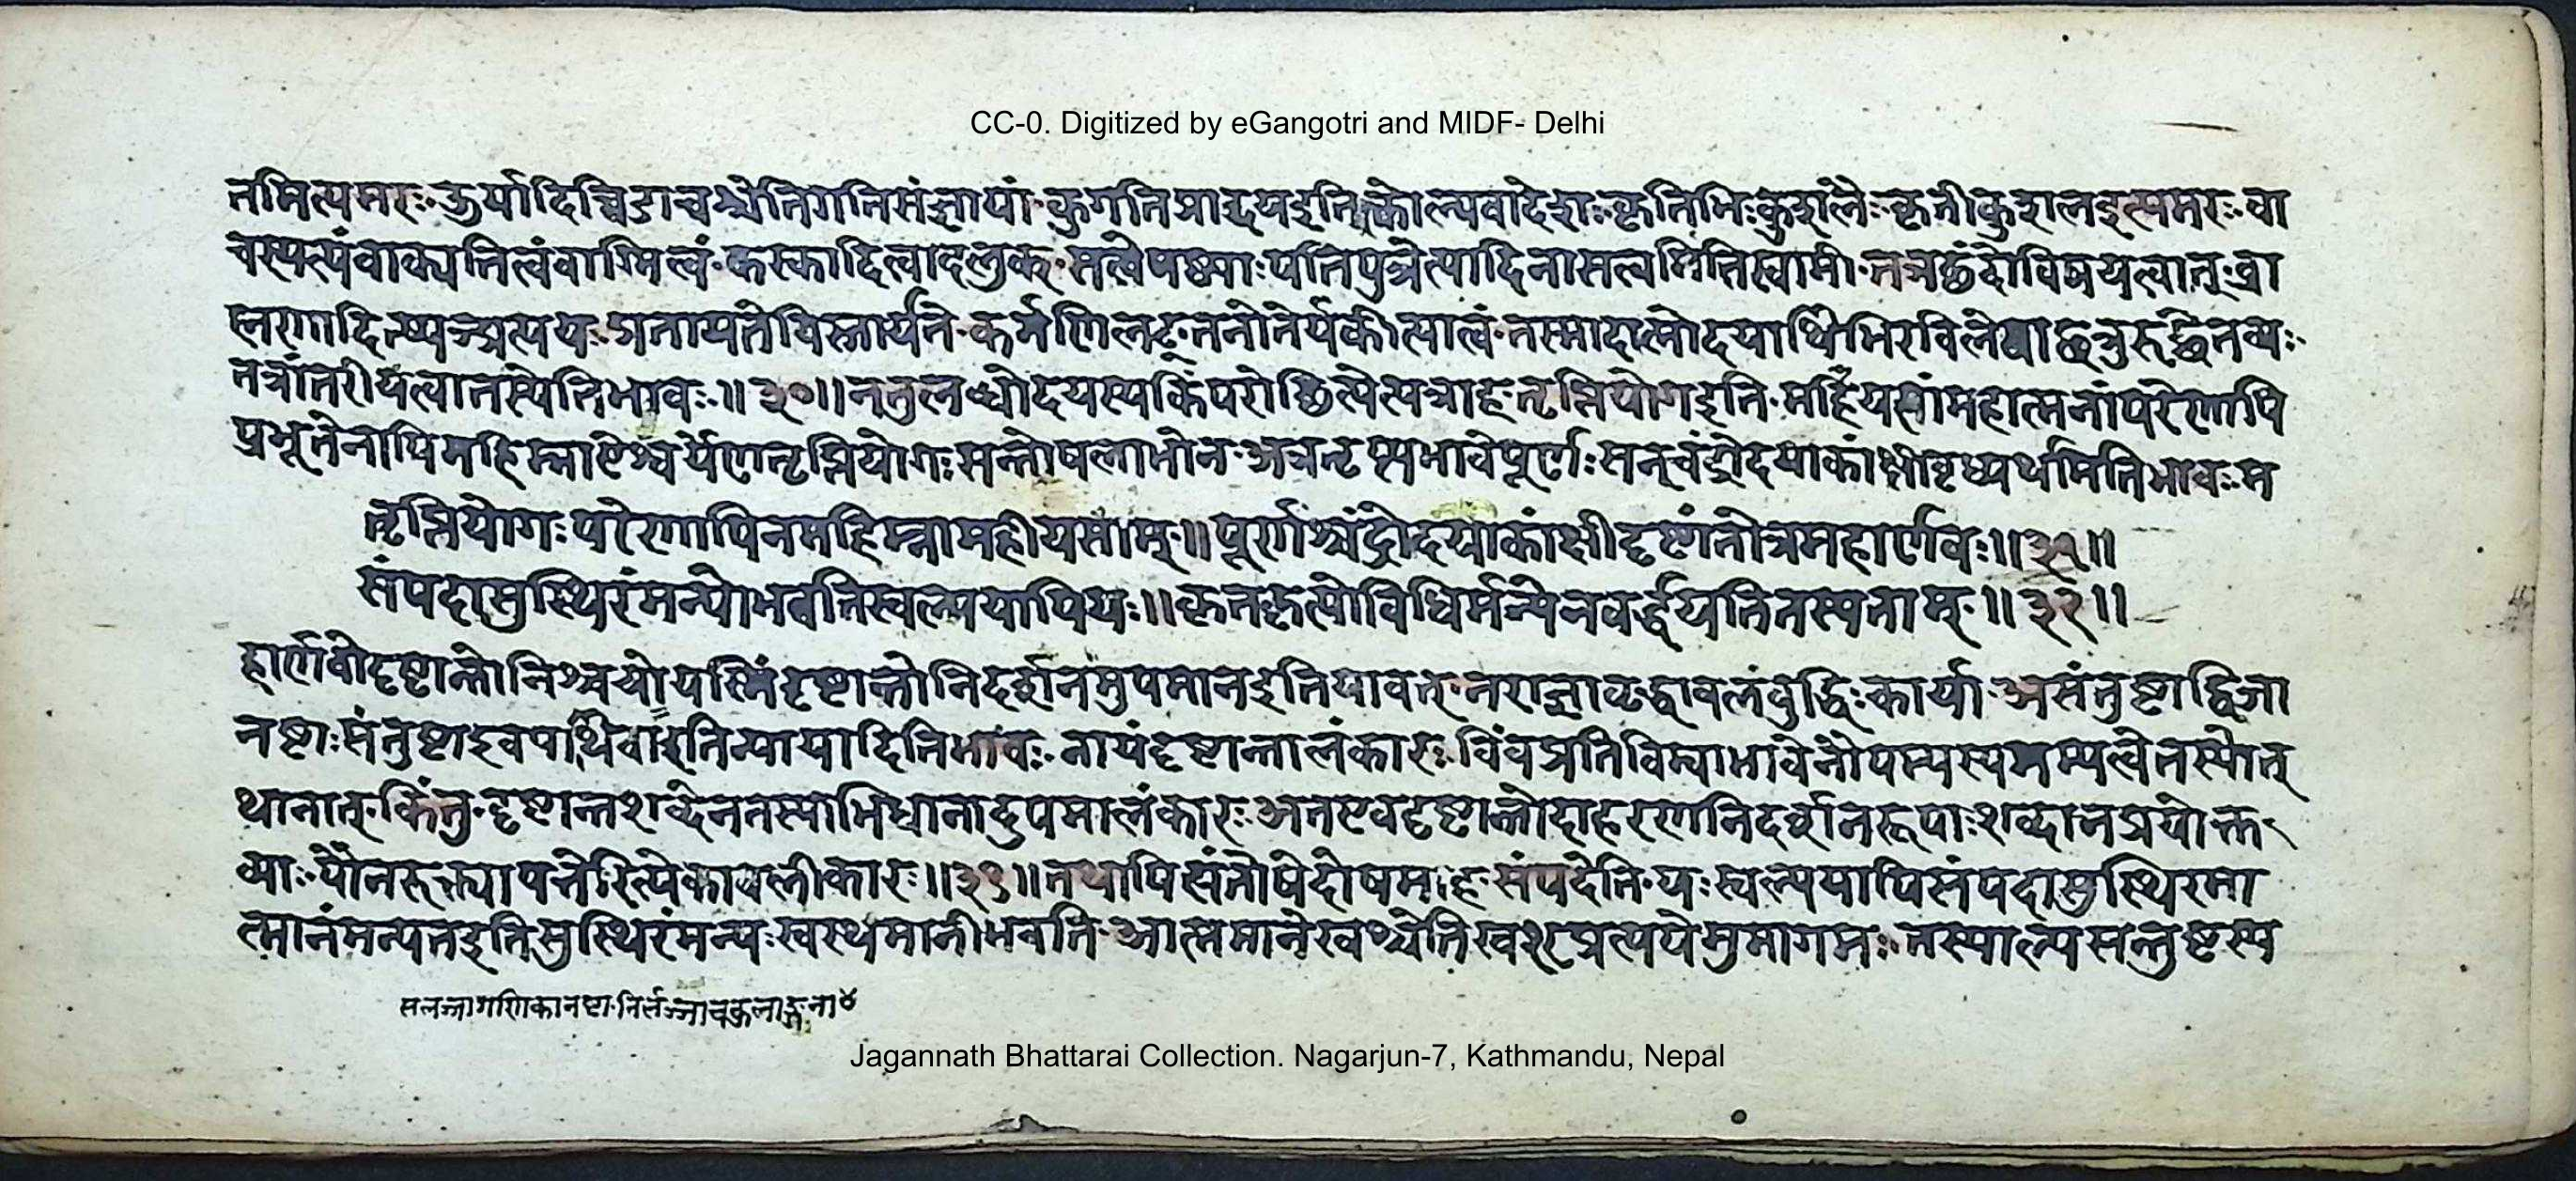 CC-0. Digitized by eGangotri and MIDF- Delhi
तमित्यमरः ऊर्यादिच्विडाचश्चेतिगतिसंज्ञायां कुगतिप्रादयइति कृतिभिः कुशलैः कृतीकुशलइत्यमरः वा
चस्पत्यंवाक्पतित्वंवाग्मित्वं कस्कादित्वादलुक् षष्ठ्याःपतिपुत्रेत्यादिनासत्वमितिस्वामी तन्नछंदोविषयत्वात् ब्रा
ह्मणादित्वात् प्रतायतेविस्तार्यते कर्मणिलट् तनोतेर्यकीत्यात्वं तस्मादात्मोदयार्थिभिरविलंबाछत्रुरुद्धेतव्यः
तत्रांतरीयत्वातस्येतिभावः ॥ ३० ॥ ननुलब्धोदयस्यकिंपरोछित्येत्यत्राह तृप्तियोगइति महीयसांमहात्मनांपरेणापि
प्रभूतेनापिमहिम्नाऐश्वर्येणतृप्तियोगःसन्तोषलाभोन अत्रतृप्त्यभावेपूर्णःसन्चंद्रोदयाकांक्षीवृध्यर्थमितिभावः म
तृप्तियोगः परेणापिनमहिम्नामहीयसाम् ॥ पूर्णश्चंद्रोदयाकांक्षीदृष्टांतोत्रमहार्णवः ॥ ३१ ॥
संपदासुस्थिरंमन्योभवतिस्वल्पयापियः ॥ कृतकृत्योविधिर्मन्येनवर्द्धयतितस्यताम् ॥ ३२ ॥
हार्णवोदृष्टान्तोनिश्चयोयस्मिंदृष्टान्तोनिदर्शनमुपमानइतियावत् नराज्ञा बुद्धिः कार्या असंतुष्टाद्विजा
नष्टाः संतुष्टाइवपार्थिवाइतिन्यायादितिभावः नायंदृष्टान्तालंकारः विंवप्रतिविम्वाभावेनौपम्यस्यगम्यत्वेतस्योत्
थानात् किंतु दृष्टान्तशब्देनतस्याभिधानादुपमालंकारः अतएवदृष्टान्तोदाहरणनिदर्शनरूपाः शब्दानप्रयोक्त
व्याः पौनरुक्त्यापत्तेरित्येकावलीकारः ॥ ३१ ॥ तथापिसंतोषेदोषमाह संपदेति यः स्वल्पयापिसंपदासुस्थिरमा
त्मानंमन्यतइतिसुस्थिरंमन्यः स्वस्थमानीभवति आत्ममानेखश्चेतिखश्प्रत्ययेमुमागमः तस्याल्पसन्तुष्टस्य
सलज्जागणिकानष्टा निर्लज्जाचकुलाङ्गना ४
Jagannath Bhattarai Collection. Nagarjun-7, Kathmandu, Nepal